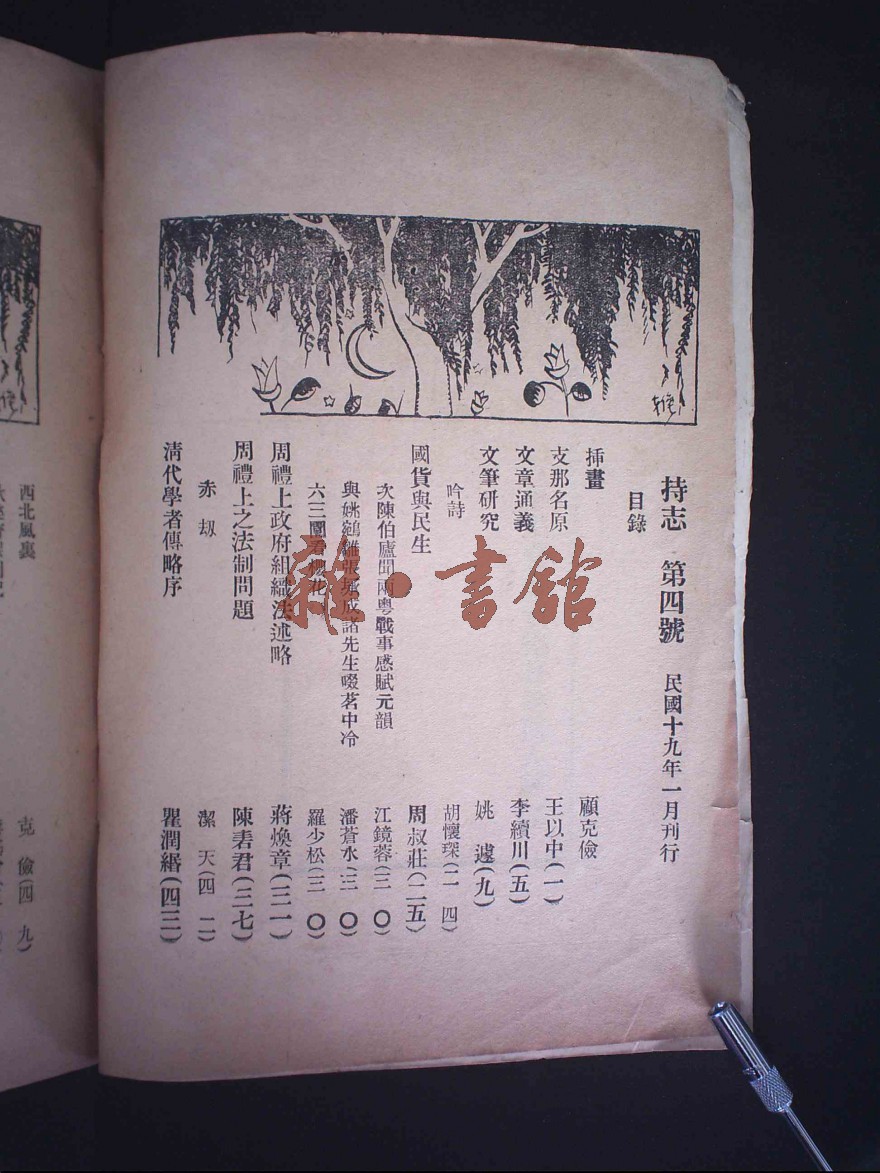 持志 第四號 民國十九年一月刊行
目錄
挿畫 顧克儉
支那名原 王以中(一)
文章通義 李續川(五)
文筆研究 姚 遽(九)
吟詩 胡懷琛(二 四)
國貨與民生 周叔莊(二五)
次陳伯廬聞兩粵戰事感賦元韻 江鏡蓉(三 〇)
與姚鵷雛張 成諸先生啜茗中冷 潘蒼水(三 〇)
六三園看櫻花 羅少松(三 〇)
周禮上政府組織法述略 蔣煥章(三一)
周禮上之法制問題 陳 君(三七)
赤刼 潔 天(四 二)
清代學者傳略序 瞿潤緡(四三)
西北風裏 克 儉(四 九)
雜·書館